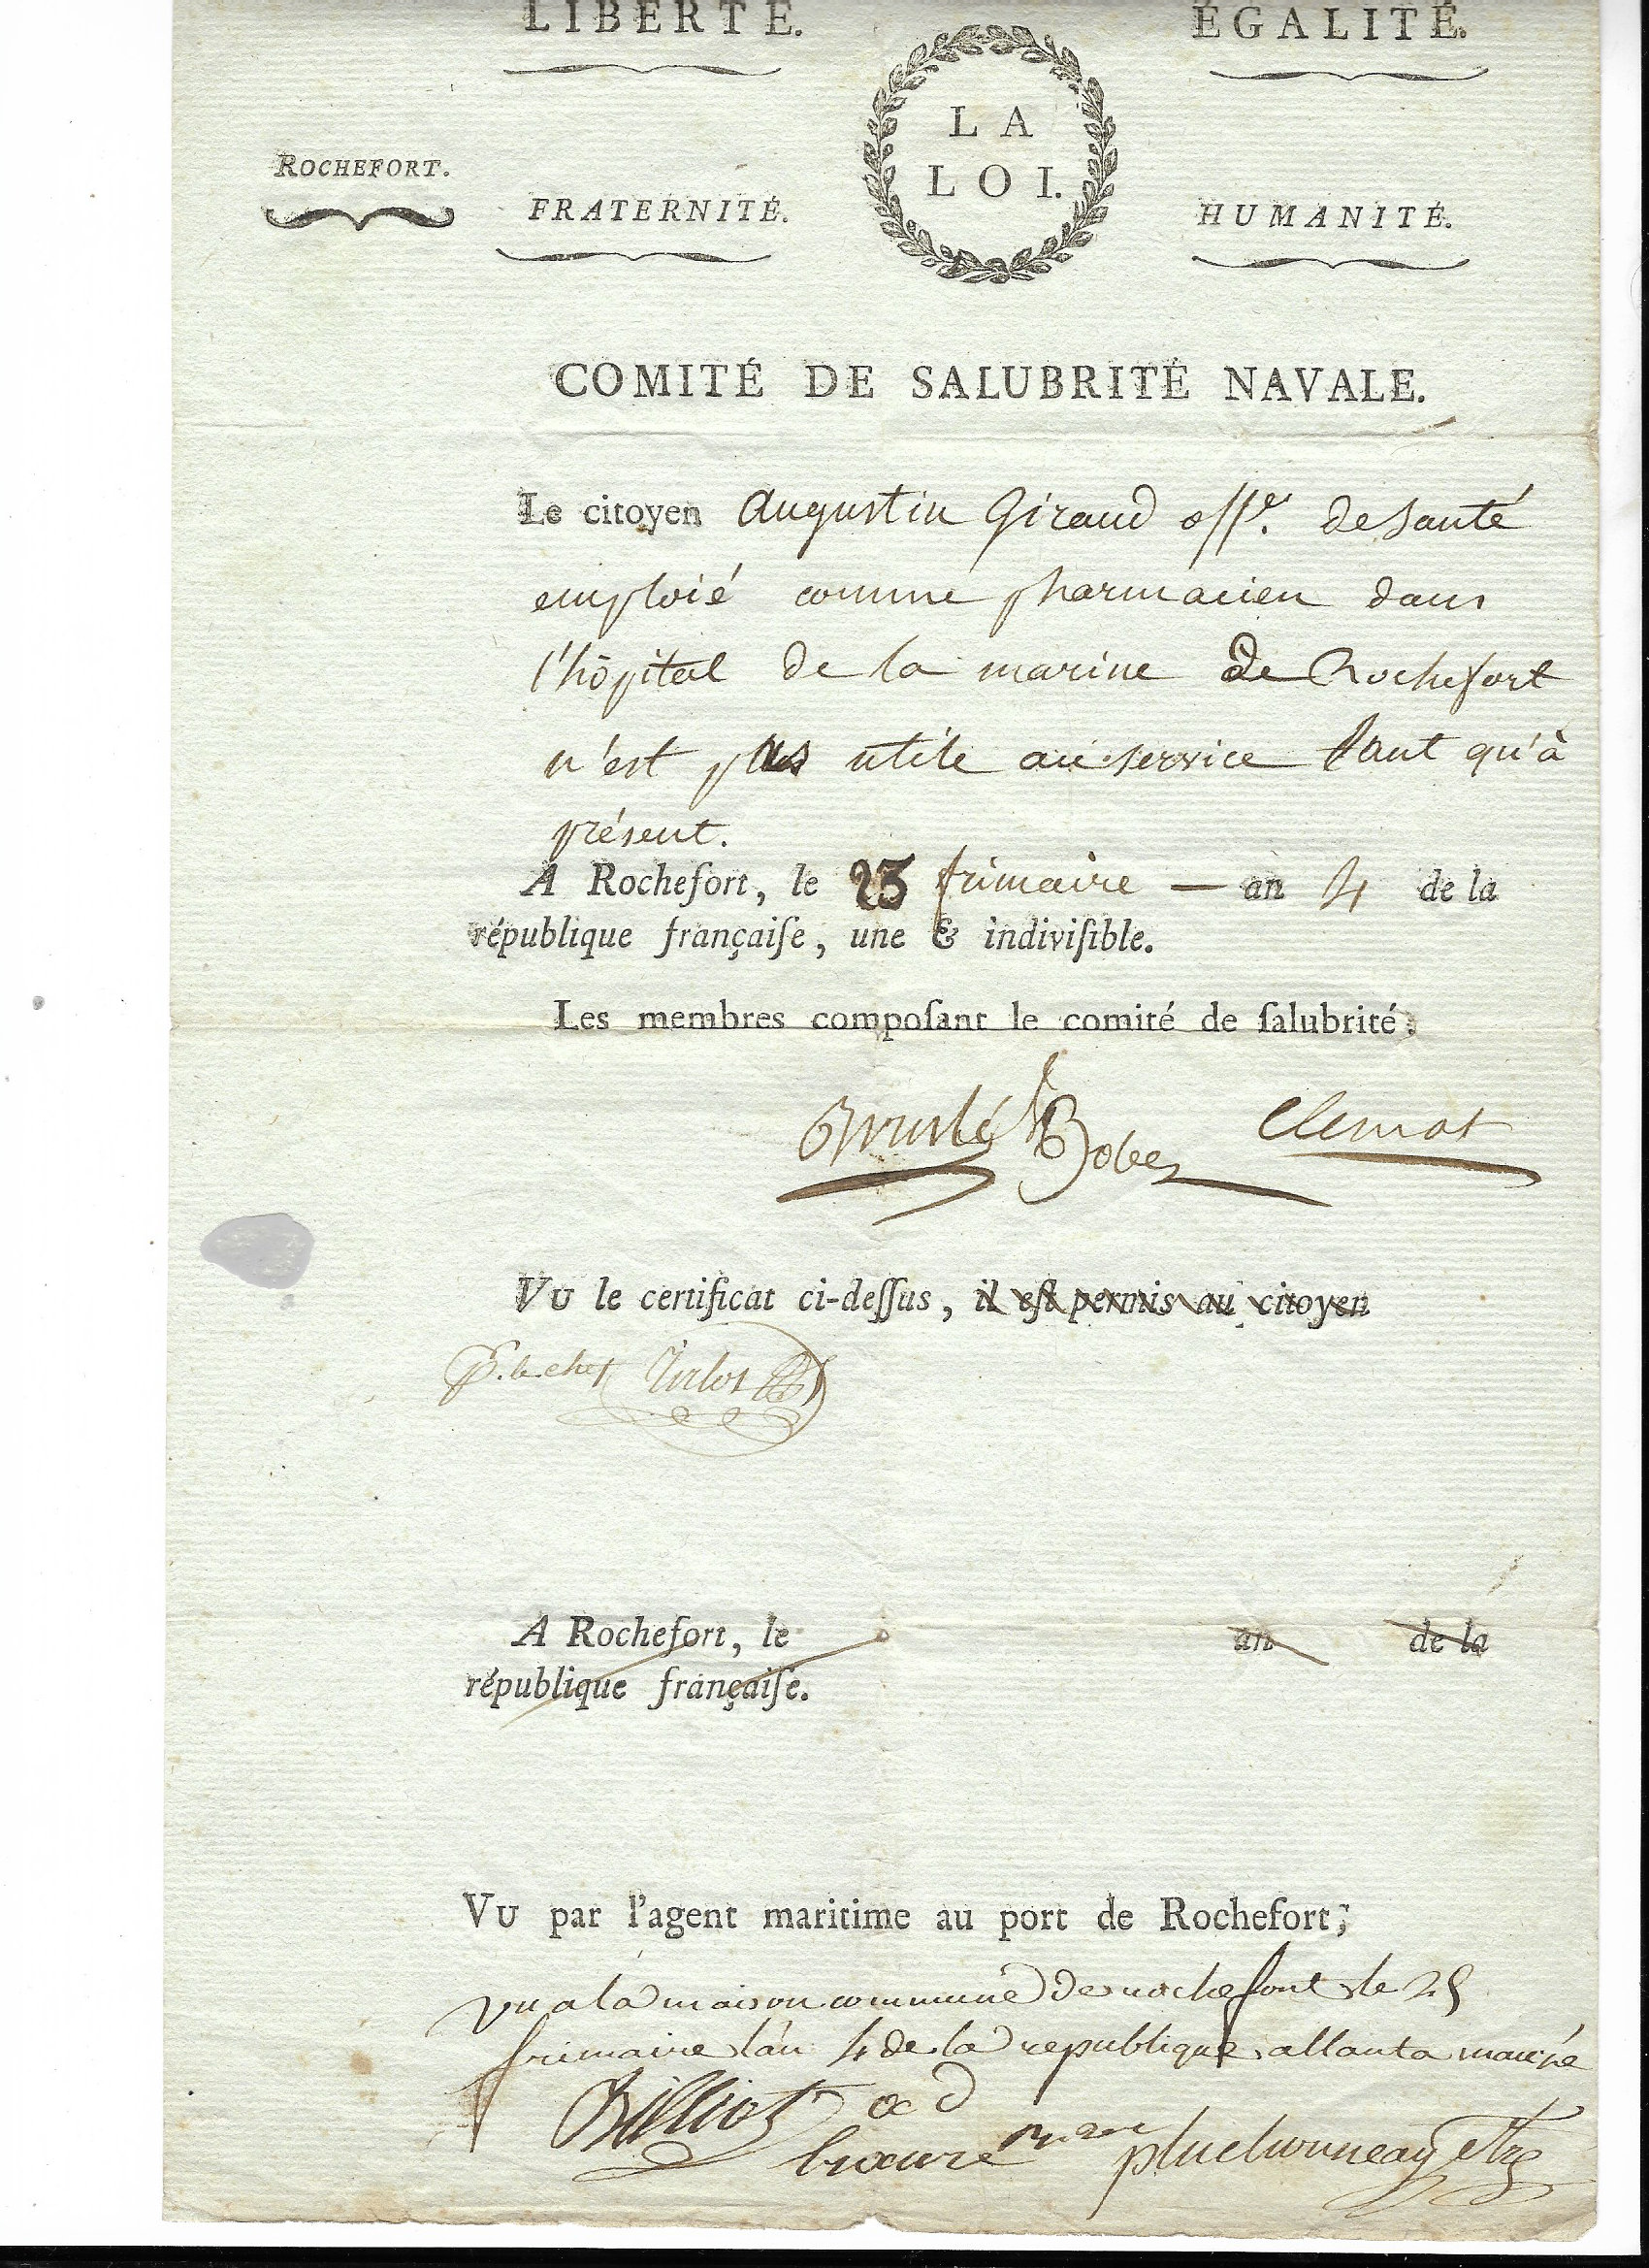 LIBERTÉ. ÉGALITÉ.
LA
LOI.
ROCHEFORT.
FRATERNITÉ. HUMANITÉ.
COMITÉ DE SALUBRITÉ NAVALE.
Le citoyen Augustin Giraud offer. de Santé
emploié comme pharmacien dans
l'hôpital de la marine de Rochefort
n'est plus utile au service tant qu'à
présent.
A Rochefort, le 23 frimaire — an 4 de la
république françaiſe, une & indiviſible.
Les membres compoſant le comité de ſalubrité;
Clemot
VU le certificat ci-deſſus, il eſt permis au citoyen
P. le chef
A Rochefort, le an de la
république françaiſe.
VU par l'agent maritime au port de Rochefort;
vu a la maison commune de rochefort le 25
frimaire l'an 4 de la republique allant a
Billiot